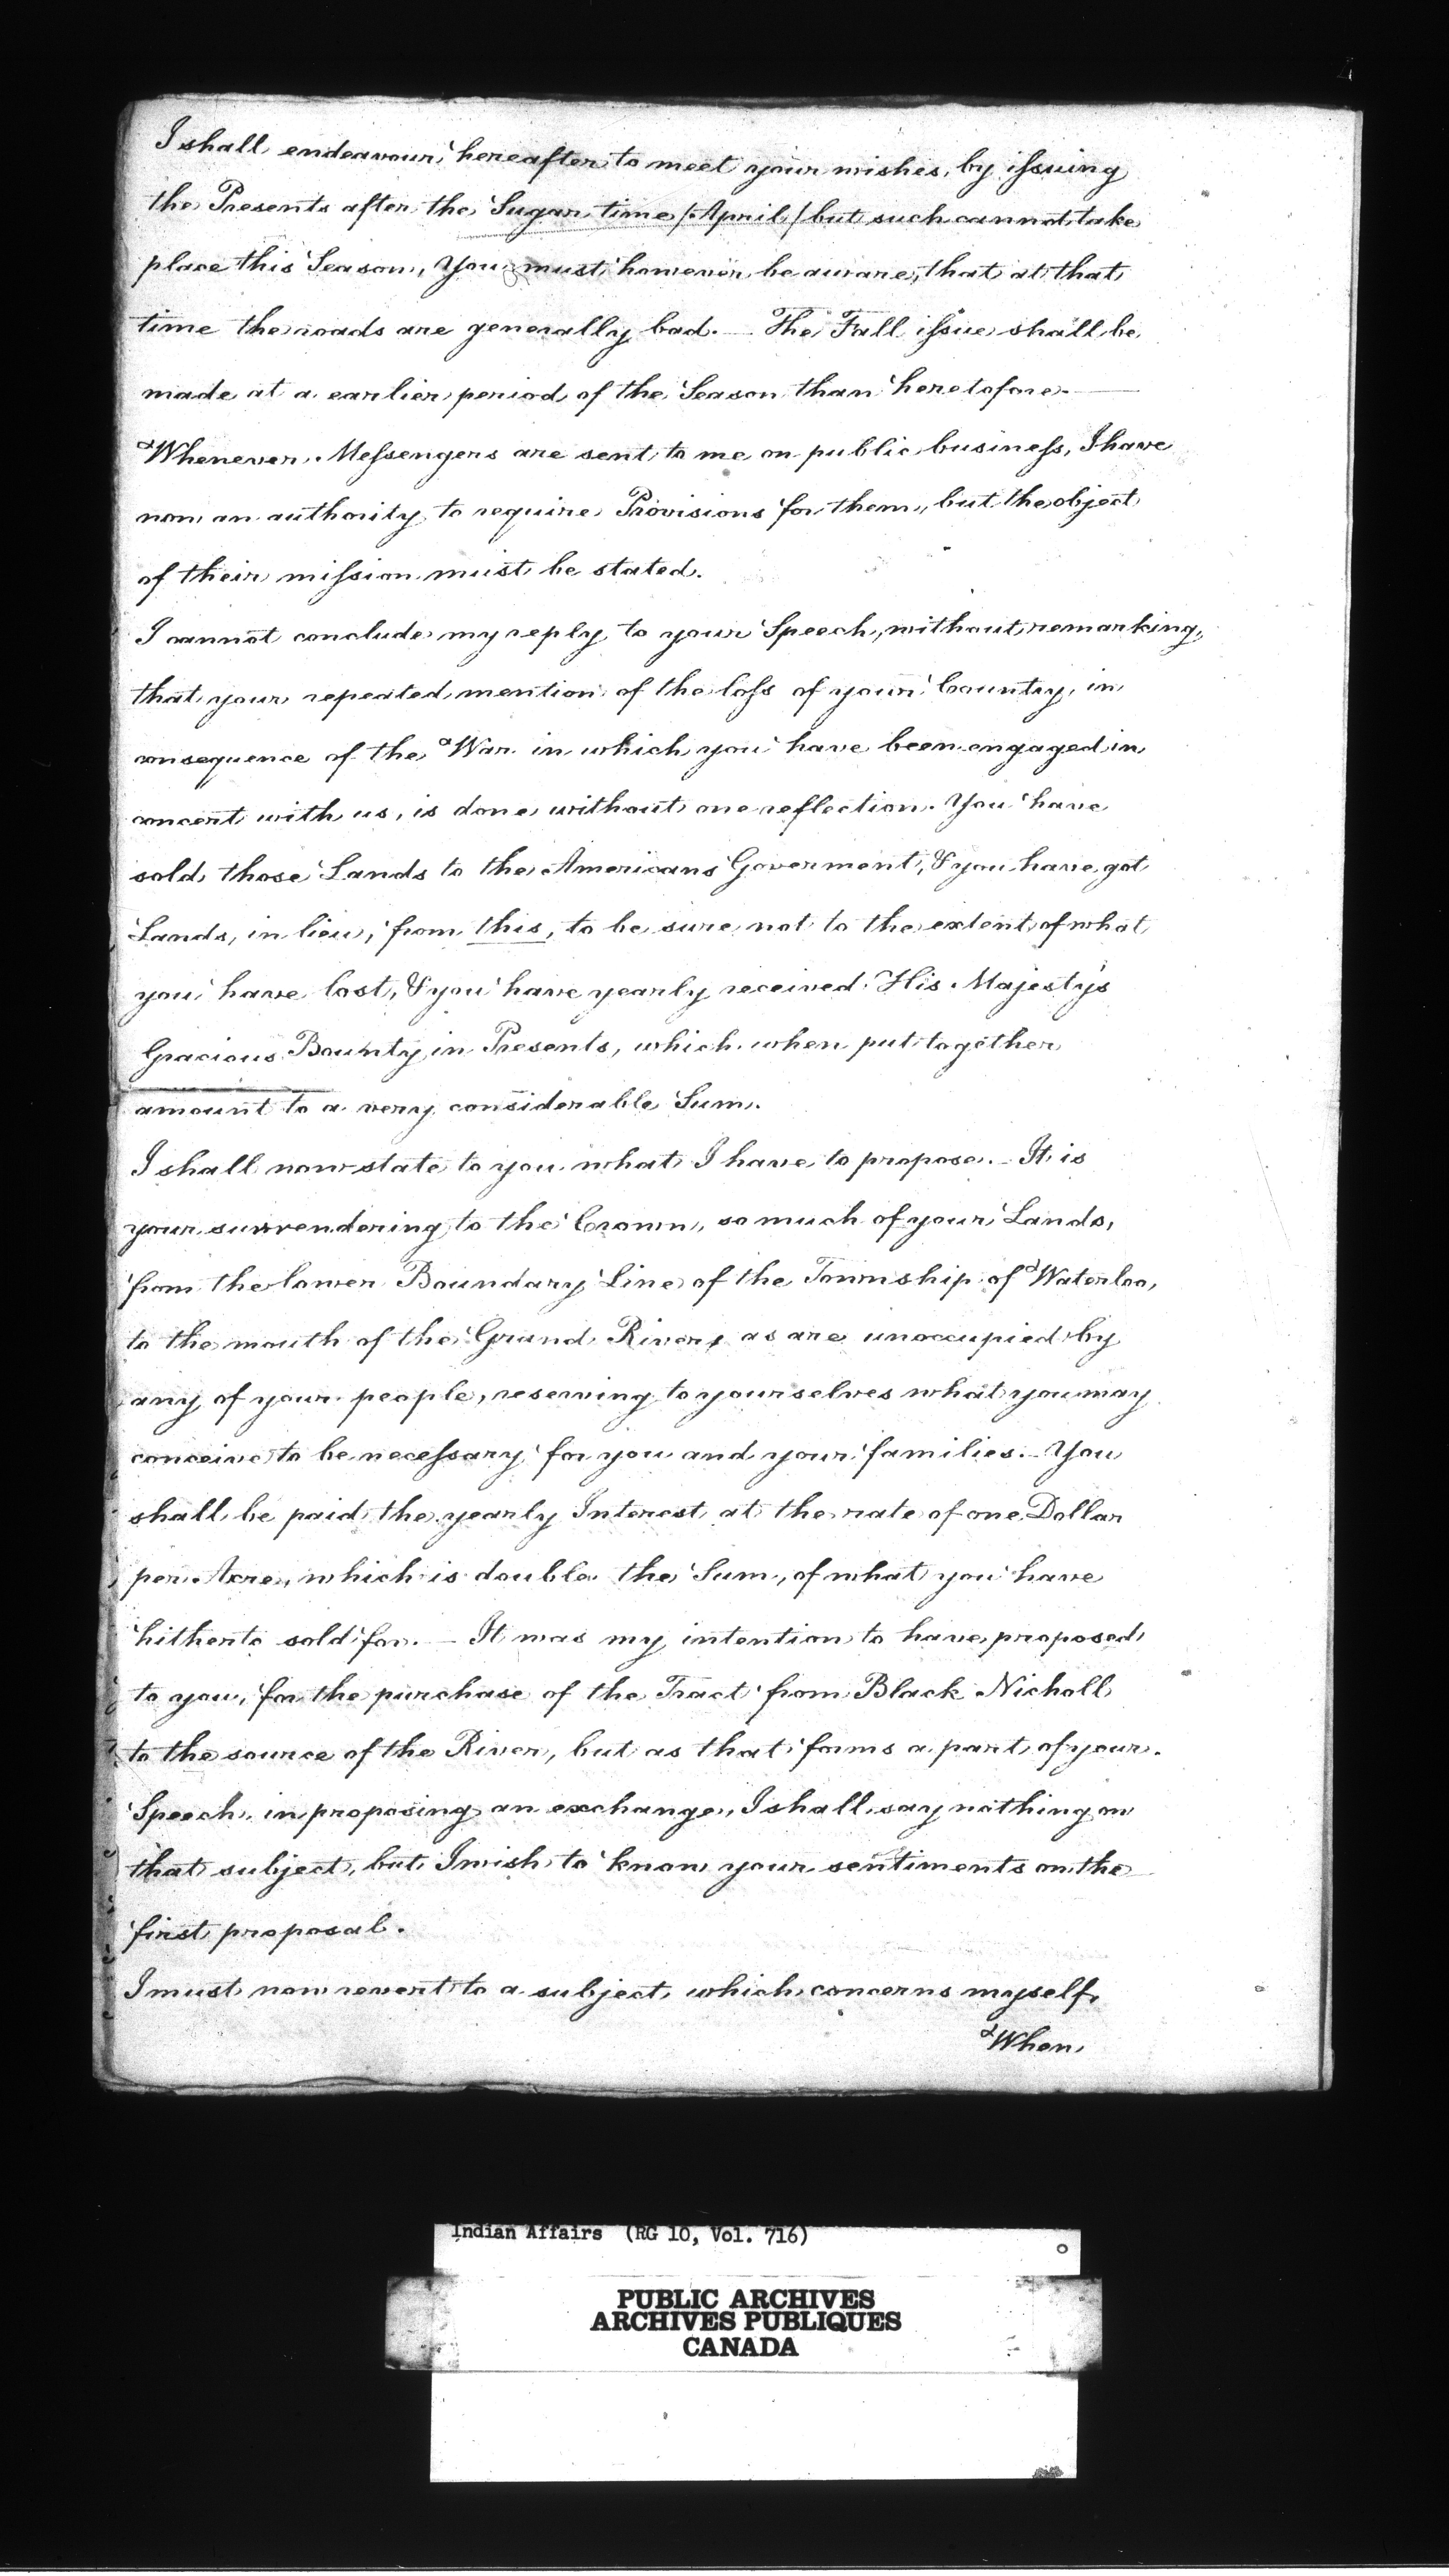 I shall endeavour hereafter to meet your wishes, by issuing
the Presents after the Sugar time /April/ but such cannot take
place this Season, You must however be aware, that at that
time the roads are generally bad. — The Fall issue shall be
made at a earlier period of the Season than heretofore. —
Whenever Messengers are sent to me on public business, I have
now an authority to require Provisions for them, but the object
of their mission must be stated.
I cannot conclude my reply to your Speech, without remarking,
that your repeated mention of the loss of your Country, in
consequence of the War in which you have been engaged in
concert with us, is done without one reflection. You have
sold those Lands to the Americans Goverment, & you have got
Lands, in lieu, from this, to be sure not to the extent of what
you have lost, & you have yearly received His Majesty's
Gracious Bounty in Presents, which when put together
amount to a very considerable Sum.
I shall now state to you what I have to propose. — It is
your surrendering to the Crown, so much of your Lands,
from the lower Boundary Line of the Township of Waterloo,
to the mouth of the Grand River, as are unoccupied by
any of your people, reserving to yourselves what you may
conceive to be necessary for you and your families. — You
shall be paid the yearly Interest at the rate of one Dollar
per Acre, which is double the Sum, of what you have
hitherto sold for. — It was my intention to have proposed
to you, for the purchase of the Tract from Black Nicholl
to the source of the River, but as that forms a part of your
Speech, in proposing an exchange, I shall say nothing on
that subject, but I wish to know your sentiments on the
first proposal.
I must now revert to a subject, which concerns myself,
When
Indian Affairs (RG 10, Vol. 716)
PUBLIC ARCHIVES
ARCHIVES PUBLIQUES
CANADA